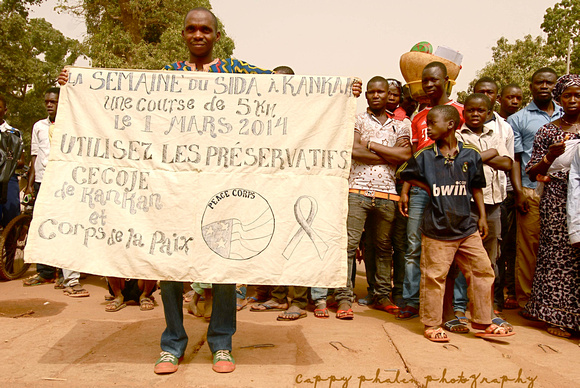 LA SEMAINE DU SIDA à KANKAN
une course de 5 Km
LE 1 MARS 2014
UTILISEZ LES PRÉSERVATIFS
CECOJE
de Kankan
et
Corps de la Paix
PEACE CORPS
bwin
cappy phalen photography